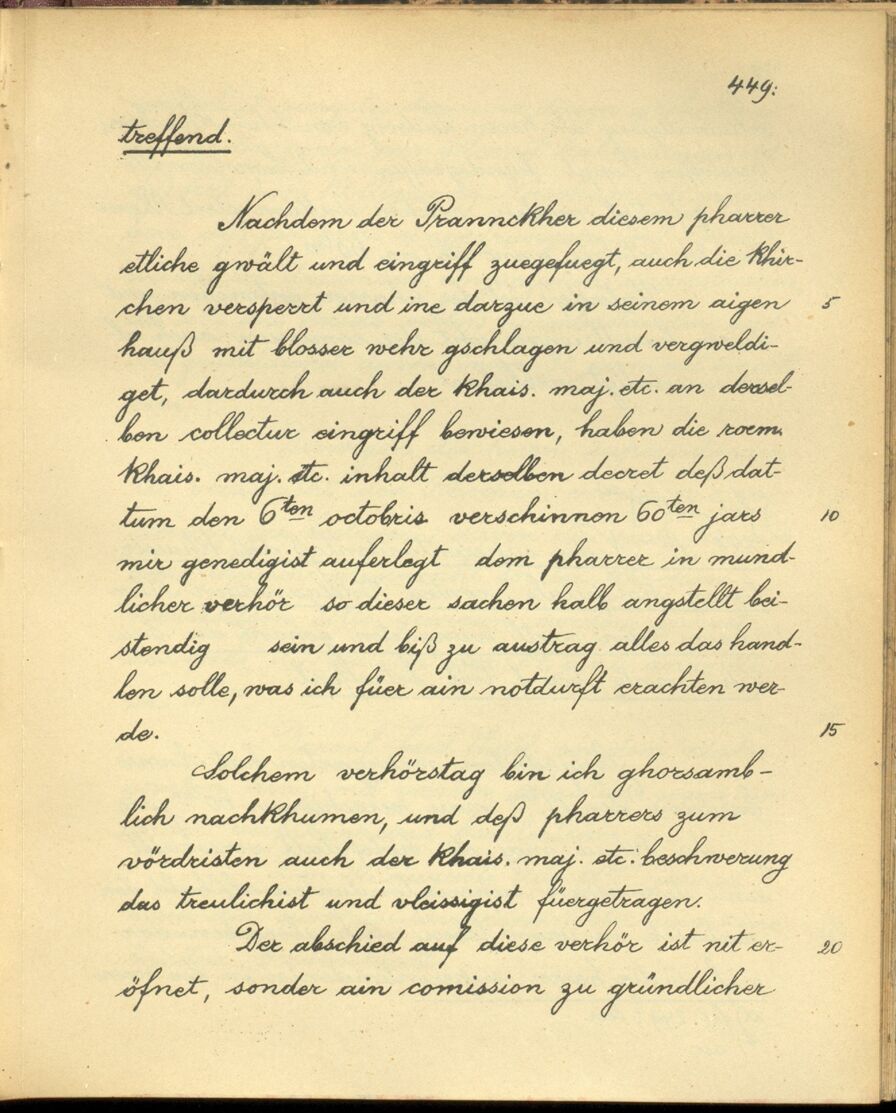 449:
treffend.
Nachdem der Prannckher diesem pharrer
etliche gwält und eingriff zuegefuegt, auch die khir-
chen versperrt und ine darzue in seinem aigen 5
hauß mit blosser wehr gschlagen und vergweldi-
get, dardurch auch der khais. maj. etc. an dersel-
ben collectur eingriff bewiesen, haben die roem.
khais. maj. etc. inhalt derselben decret deß dat-
tum den 6ten octobris verschinnen 60ten jars 10
mir genedigist auferlegt dem pharrer in mund-
licher verhör so dieser sachen halb angstellt bei-
stendig sein und biß zu austrag alles das hand-
len solle, was ich füer ain notdurft erachten wer-
de. 15
Solchem verhörstag bin ich ghorsamb-
lich nachkhumen, und deß pharrers zum
vördristen auch der khais. maj. etc. beschwerung
das treulichist und vleissigist füergetragen.
Der abschied auf diese verhör ist nit er- 20
öfnet, sonder ain comission zu gründlicher